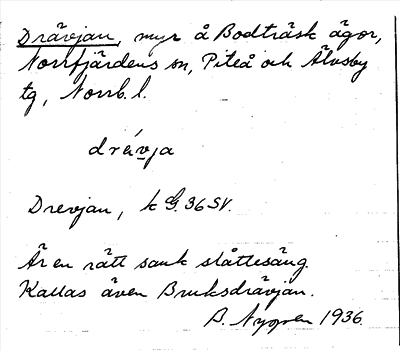 Drävjan, myr å Bodträsk ägor,
Norrfjärdens sn, Piteå och Älvsby
tg, Norrb. l.
drävja
Drevjan, k G. 36 SV.
Är en rätt sank slåttesäng.
Kallas även Bruksdrävjan.
B. Nygren 1936.